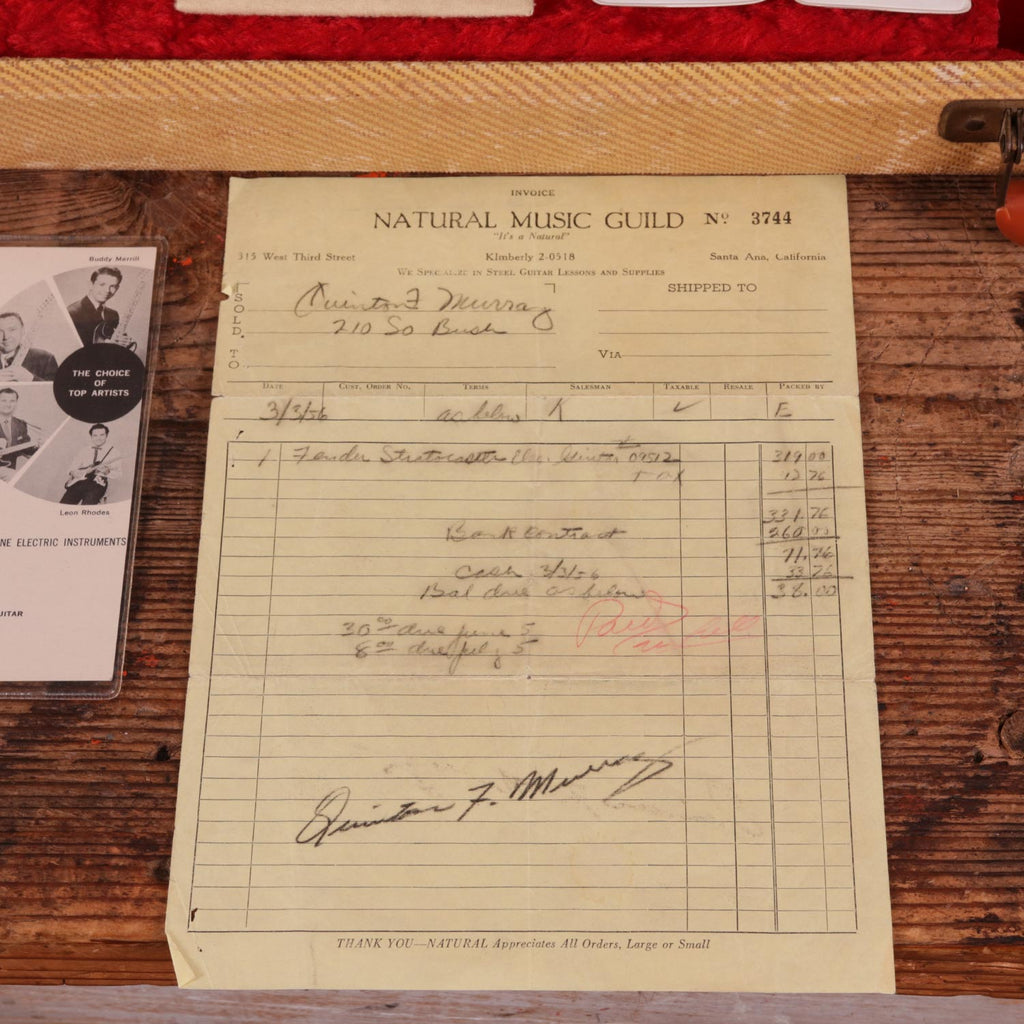 Buddy Merrill
THE CHOICE
OF
TOP ARTISTS
Leon Rhodes
NE ELECTRIC INSTRUMENTS
UITAR
INVOICE
NATURAL MUSIC GUILD Nº 3744
"It's a Natural"
315 West Third Street KImberly 2-0518 Santa Ana, California
WE SPECIALIZE IN STEEL GUITAR LESSONS AND SUPPLIES
SOLD TO
SHIPPED TO
Quinton F Murray
210 So Bush
VIA
DATE CUST. ORDER NO. TERMS SALESMAN TAXABLE RESALE PACKED BY
3/3/56 as below K ✓ E
1 Fender Stratocaster Guitar # 09512 319 00
Tax 12 76
331.76
Bank Contract 260 00
71.76
Cash 3/3/56 33 76
Bal due as below 38.00
30 00 due June 5
8 00 due July 5
Paid
Quinton F. Murray
THANK YOU—NATURAL Appreciates All Orders, Large or Small